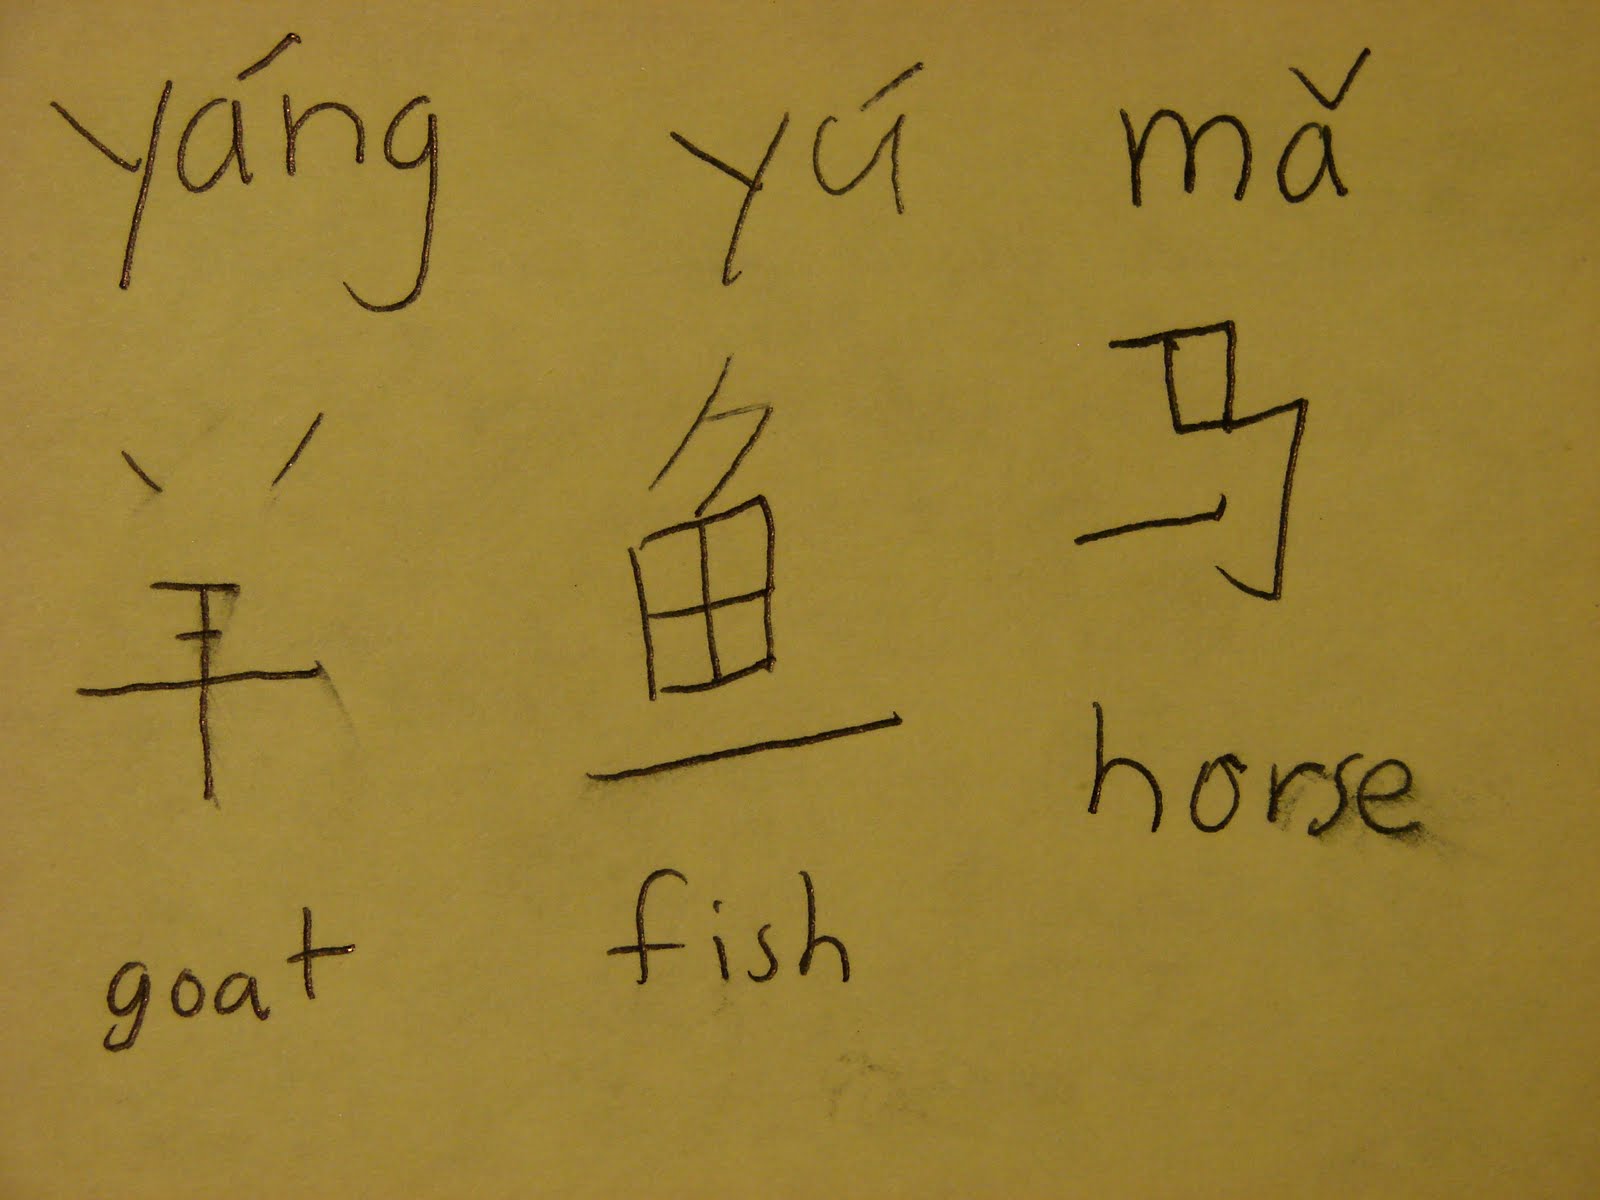 yáng yú mǎ
羊 鱼 马
goat fish horse